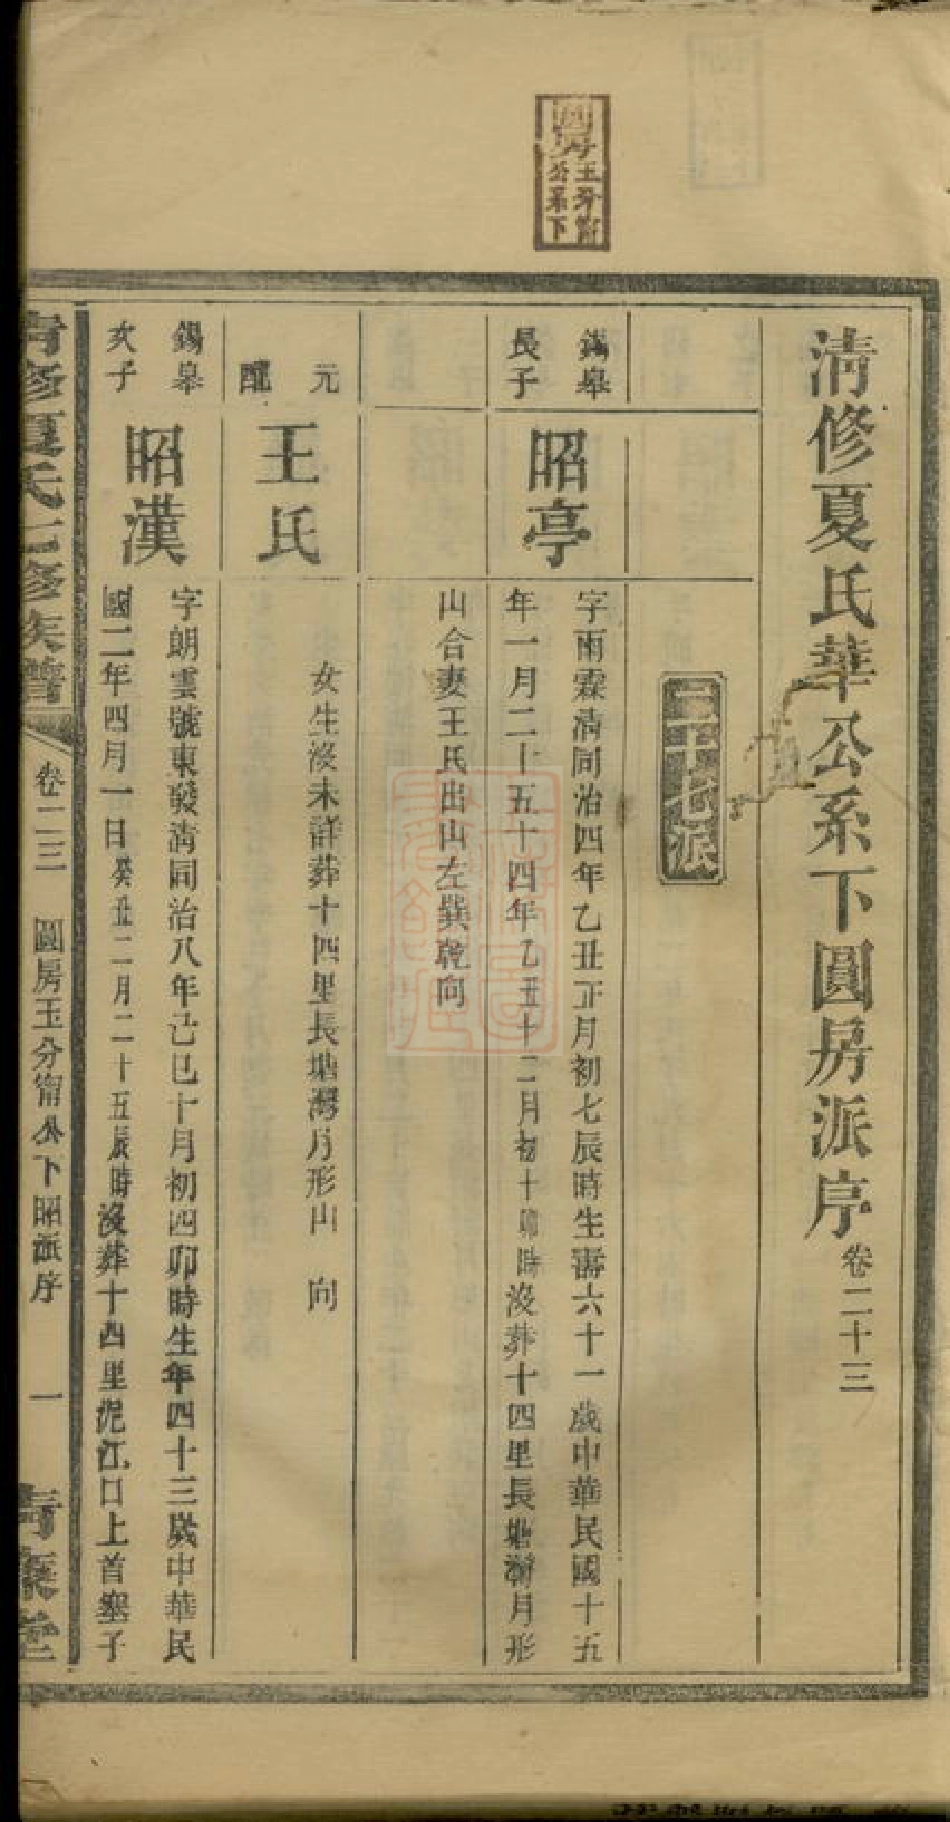 圓房玉分甯
公系下
清修夏氏華公系下圓房派序 卷二十三
錫皋
長子
昭亭
字雨霖清同治四年乙丑正月初七辰時生壽六十一歲中華民國十五
年一月二十五十四年乙丑十二月初十卯時沒葬十四里長塘灣月形
山合妻王氏出山左巽乾向
元
配
王氏
女生沒未詳葬十四里長塘灣月形山 向
錫皋
次子
昭漢
字朗雲號東發清同治八年己巳十月初四卯時生年四十三歲中華民
國二年四月一日癸丑二月二十五辰時沒葬十四里泥江口上首壂子
清修夏氏七修族譜 卷二三 圓房玉分甯公下昭派序 一